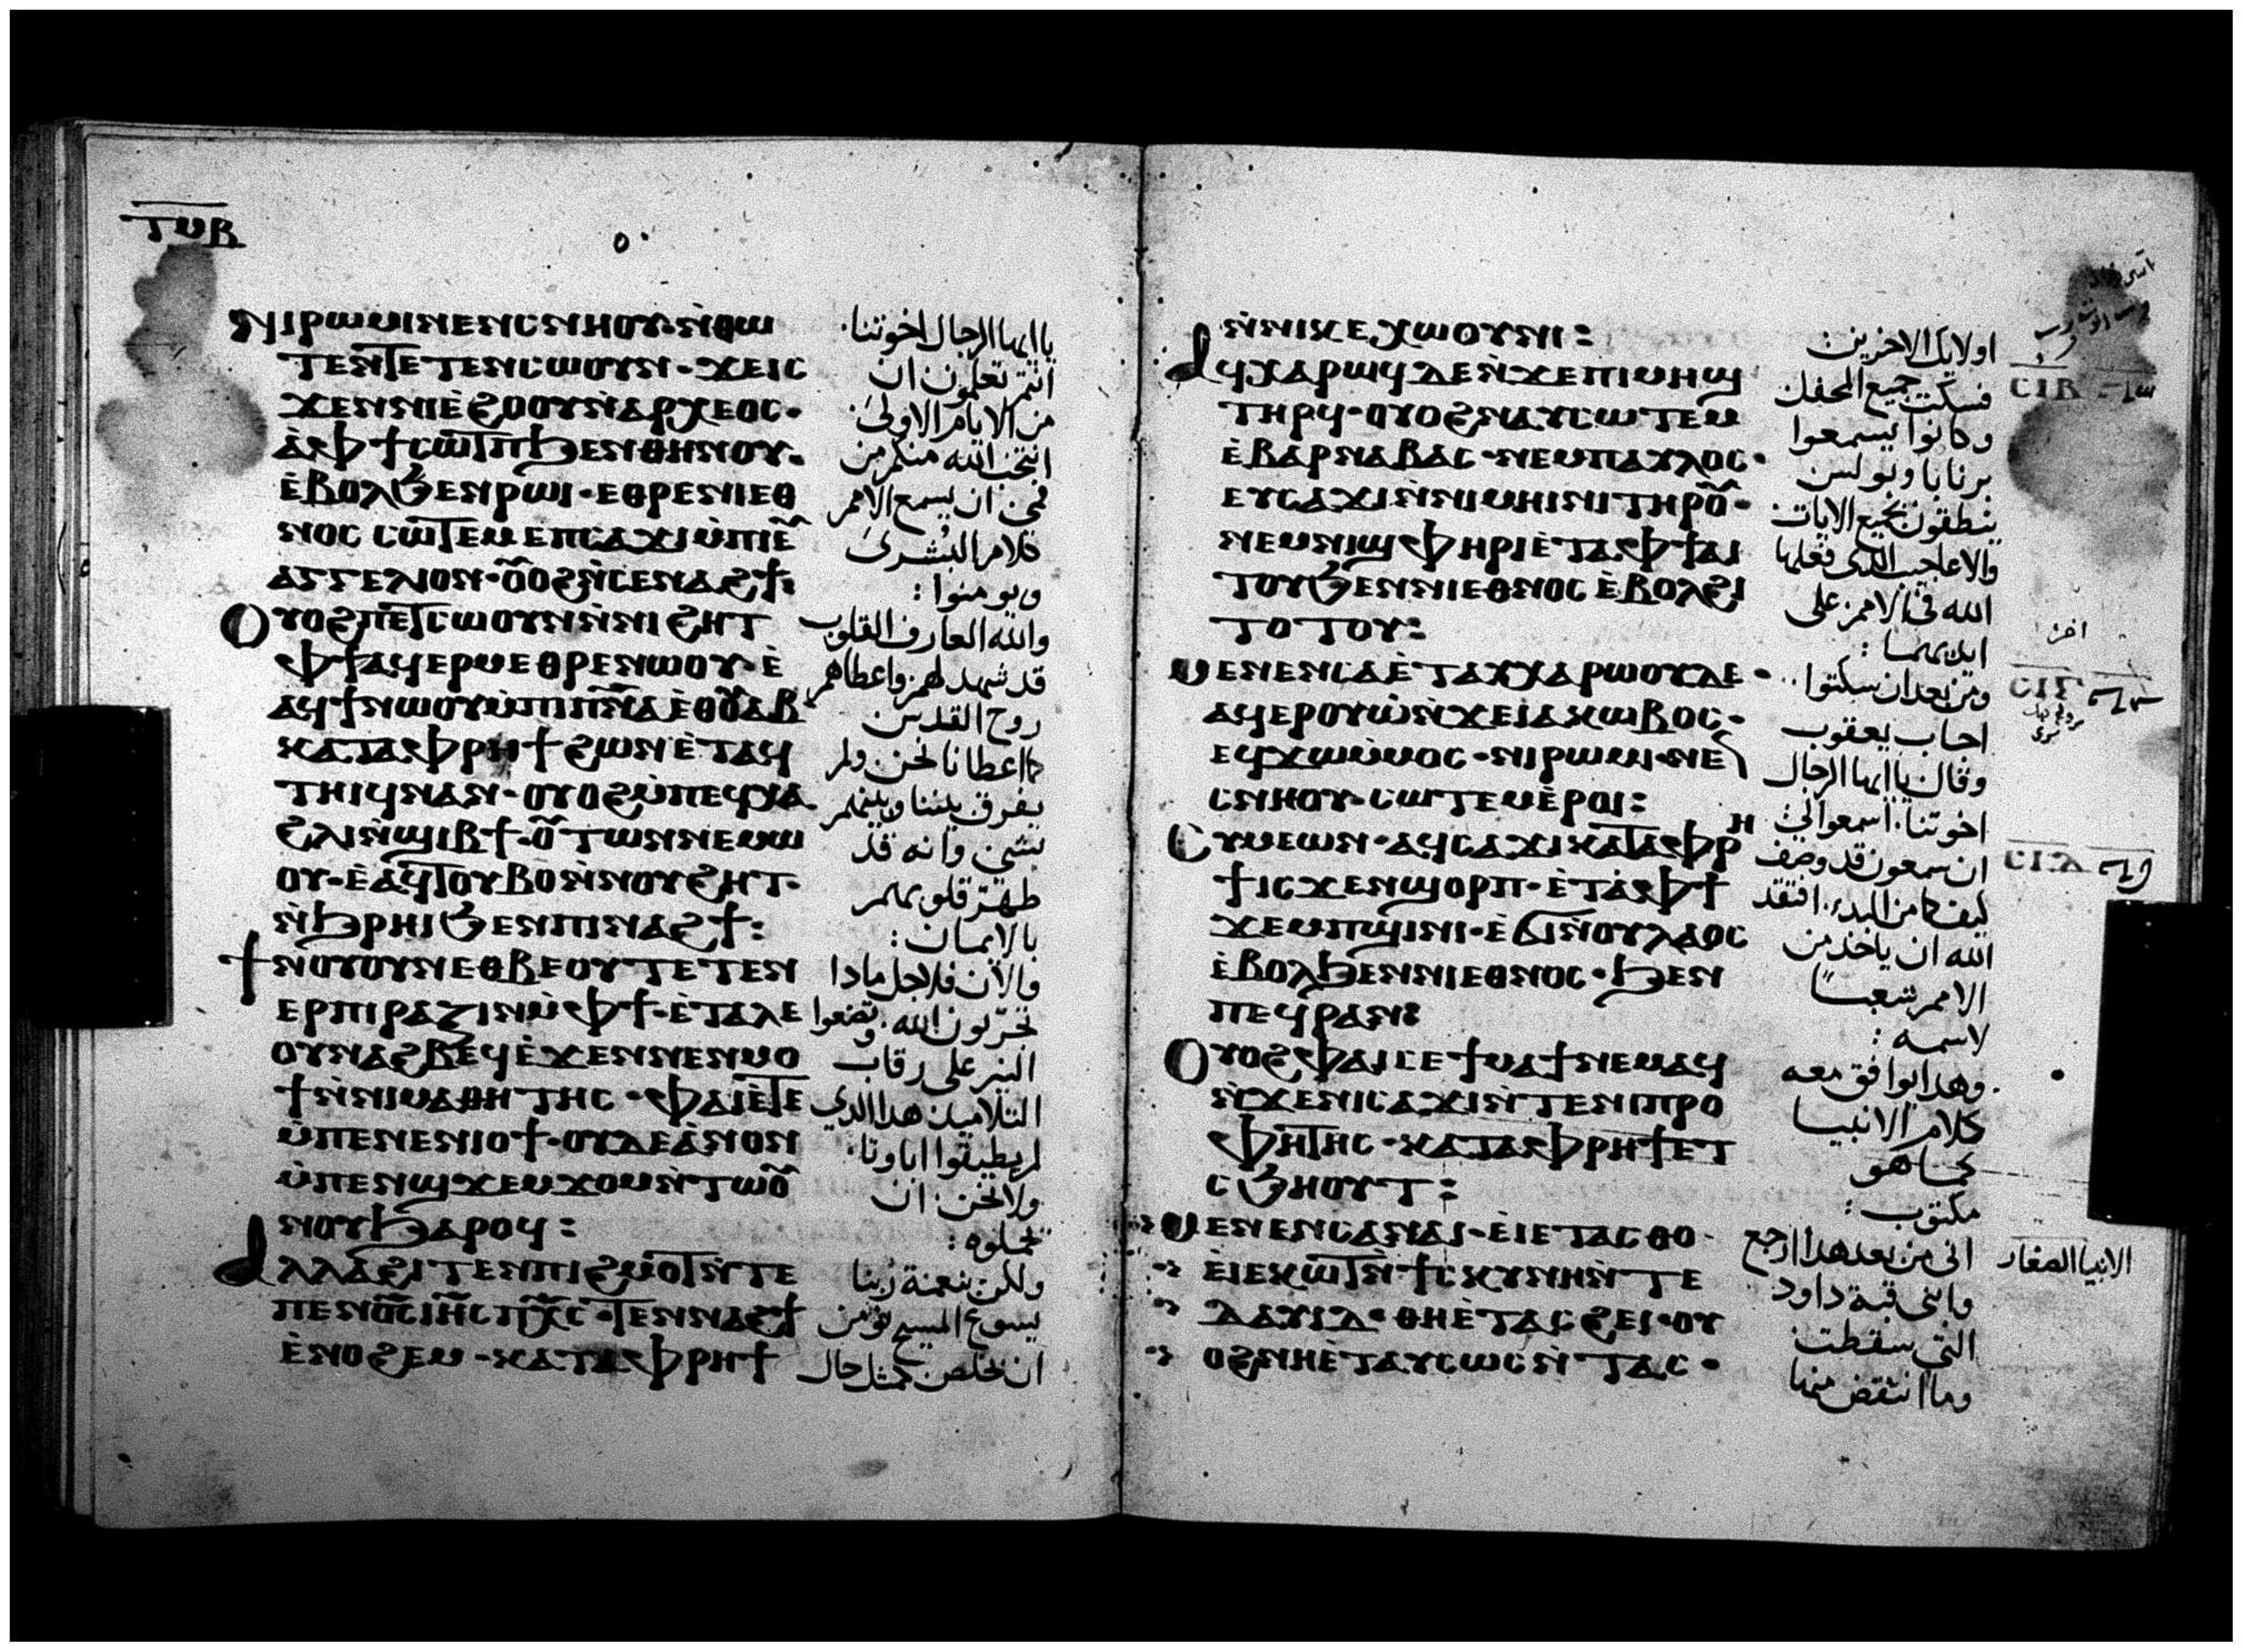 ⲧⲙⲃ
ⲛⲓⲣⲱⲙⲓⲛⲉⲛⲥⲛⲏⲟⲩ·ⲛ̀ⲑⲱ
ⲧⲉⲛⲧⲉⲧⲉⲛⲥⲱⲟⲩⲛ·ϫⲉⲓⲥ
ϫⲉⲛⲛⲓⲉ̀ϩⲟⲟⲩⲛ̀ⲁⲣⲭⲉⲟⲥ·
ⲁ̀ⲫϯⲥⲱⲧⲡϧⲉⲛⲑⲏⲛⲟⲩ·
ⲉ̀ⲃⲟⲗϧⲉⲛⲣⲱⲓ·ⲉⲑⲣⲉⲛⲓⲉⲑ
ⲛⲟⲥ ⲥⲱⲧⲉⲙⲉⲡⲥⲁϫⲓⲙ̀ⲡⲓⲉⲩ
ⲁⲅⲅⲉⲗⲓⲟⲛ·ⲟⲩⲟϩⲛ̀ⲥⲉⲛⲁϩϯ:
ⲟⲩⲟϩⲡⲉⲧⲥⲱⲟⲩⲛⲛ̀ⲛⲓϩⲏⲧ
ⲫϯⲁϥⲉⲣⲙⲉⲑⲣⲉⲛⲱⲟⲩ·ⲉ̀
ⲁϥϯⲛⲱⲟⲩⲙ̀ⲡⲓⲡⲛⲁⲉ̀ⲑⲟⲩⲁⲃ
ⲕⲁⲧⲁⲫⲣⲏϯϩⲱⲛⲉ̀ⲧⲁϥ
ⲧⲏⲓϥⲛⲁⲛ·ⲟⲩⲟϩⲙ̀ⲡⲉϥⲭⲁ
ϩⲗⲓⲛ̀ϣⲓⲃϯ·ⲟⲩⲧⲱⲛⲛⲉⲙⲱ
ⲟⲩ·ⲉ̀ⲁϥⲧⲟⲩⲃⲟⲛ̀ⲛⲟⲩϩⲏⲧ·
ⲛ̀ϧⲣⲏⲓϧⲉⲛⲡⲓⲛⲁϩϯ:
ϯⲛⲟⲩⲟⲩⲛⲉⲑⲃⲉⲟⲩⲧⲉⲧⲉⲛ
ⲉⲣⲡⲓⲣⲁⲍⲓⲛⲙ̀ⲫϯ·ⲉ̀ⲧⲁⲗⲉ
ⲟⲩⲛⲁϩⲃⲉϥⲉ̀ϫⲉⲛⲛⲉⲛⲙⲟ
ϯⲛ̀ⲛⲓⲙⲁⲑⲏⲧⲏⲥ·ⲫⲁⲓⲉ̀ⲧⲉ
ⲙ̀ⲡⲉⲛⲉⲛⲓⲟϯ·ⲟⲩⲇⲉⲁ̀ⲛⲟⲛ
ⲙ̀ⲡⲉⲛϣϫⲉⲙϫⲟⲙⲛ̀ⲧⲱⲟⲩ
ⲛⲟⲩϧⲁⲣⲟϥ:
ⲁⲗⲗⲁϩⲓⲧⲉⲛⲡⲓϩⲙⲟⲧⲛ̀ⲧⲉ
ⲡⲉⲛⲟ̅ⲥ̅ⲓⲏ̅ⲥ̅ⲡⲭ̅ⲥ̅·ⲧⲉⲛⲛⲁϩϯ
ⲉ̀ⲛⲟϩⲉⲙ·ⲕⲁⲧⲁⲫⲣⲏϯ
يا ايها الرجال اخوتنا
انتم تعلمون ان
من الايام الاولى
انتخب الله منكم من
فمى ان يسمع الامم
كلام البشرى
ويومنوا:
والله العارف القلوب
قد شهد لهم واعطاهم
روح القدس
كما اعطانا نحن ولم
يفرق بيننا وبينهم
بشى وانه قد
طهّر قلوبهم
بالايمان:
والان فلاجل ماذا
تجرّبون الله وتضعوا
النير على رقاب
التلاميذ هذا الذي
لم يطيقوا اباونا
ولا نحن ان
نحملوه:
ولكن بنعمة ربنا
يسوع المسيح نؤمن
ان نخلص كمثل حال
ⲛ̀ⲛⲓⲕⲉⲭⲱⲟⲩⲛⲓ:
ⲁϥⲭⲁⲣⲱϥⲇⲉⲛ̀ϫⲉⲡⲓⲙⲏϣ
ⲧⲏⲣϥ·ⲟⲩⲟϩⲛⲁⲩⲥⲱⲧⲉⲙ
ⲉ̀ⲃⲁⲣⲛⲁⲃⲁⲥ·ⲛⲉⲙⲡⲁⲩⲗⲟⲥ·
ⲉⲩⲥⲁϫⲓⲛ̀ⲛⲓⲙⲏⲓⲛⲓⲧⲏⲣⲟⲩ·
ⲛⲉⲙⲛⲓϣⲫⲏⲣⲓⲉ̀ⲧⲁⲫϯⲁⲓ
ⲧⲟⲩϧⲉⲛⲛⲓⲉⲑⲛⲟⲥⲉ̀ⲃⲟⲗϩⲓ
ⲧⲟⲧⲟⲩ:
ⲙⲉⲛⲉⲛⲥⲁⲉ̀ⲧⲁⲩⲭⲁⲣⲱⲟⲩⲇⲉ·
ⲁϥⲉⲣⲟⲩⲱ̀ⲛ̀ϫⲉⲓⲁⲕⲱⲃⲟⲥ·
ⲉϥϫⲱⲙ̀ⲙⲟⲥ·ⲛⲓⲣⲱⲙⲓ·ⲛⲉ
ⲥⲛⲏⲟⲩ·ⲥⲱⲧⲉⲙⲉ̀ⲣⲟⲓ:
ⲥⲩⲙⲉⲱⲛ·ⲁϥⲥⲁϫⲓⲕⲁⲧⲁⲫⲣⲏ
ϯⲓⲥϫⲉⲛϣⲟⲣⲡ·ⲉ̀ⲧⲁ̀ⲫϯ
ϫⲉⲙⲡϣⲓⲛⲓ·ⲉ̀ϭⲓⲛ̀ⲟⲩⲗⲁⲟⲥ
ⲉ̀ⲃⲟⲗϧⲉⲛⲛⲓⲉⲑⲛⲟⲥ·ϧⲉⲛ
ⲡⲉϥⲣⲁⲛ:
ⲟⲩⲟϩⲫⲁⲓⲥⲉϯⲙⲁϯⲛⲉⲙⲁϥ
ⲛ̀ϫⲉⲛⲓⲥⲁϫⲓⲛ̀ⲧⲉⲛⲓⲡⲣⲟ
ⲫⲏⲧⲏⲥ·ⲕⲁⲧⲁⲫⲣⲏϯⲉⲧ
ⲥϧⲏⲟⲩⲧ:
ⲙⲉⲛⲉⲛⲥⲁⲛⲁⲓ·ⲉⲓⲉⲧⲁⲥⲑⲟ·
ⲉ̀ⲓⲉⲕⲱⲧⲛ̀ϯⲥⲕⲩⲛⲏⲛ̀ⲧⲉ
ⲇⲁⲩⲓⲇ·ⲑⲏⲉ̀ⲧⲁⲥϩⲉⲓ·ⲟⲩ
ⲟϩⲛⲏⲉ̀ⲧⲁⲩⲥⲱⲥⲛ̀ⲧⲁⲥ·
اولايك الاخرين
فسكت جميع المحفل
وكانوا يسمعوا
برنابا وبولس
ينطقون بجميع الايات
والاعاجيب الذى فعلها
الله فى الامم على
ايديهما:
ومن بعد ان سكتوا
اجاب يعقوب
وقال يا ايها الرجال
اخوتنا اسمعوا لي
ان سمعون قد وصف
كيف كما من البدء افتقد
الله ان ياخذ من
الامم شعبًا
لاسمه:
وهذا يوافق معه
كلام الانبيا
كما هو
مكتوب:
انى من بعد هذا ارجع
وابنى قبة داود
التي سقطت
وما انتقض منها
ⲥⲓⲃ
اخر
ⲥⲓⲅ
ⲥⲓⲇ
الانبيا الصغار